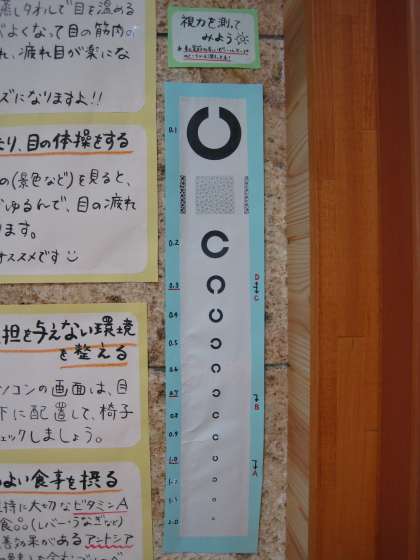 蒸しタオルで目を温める
がよくなって目の筋肉の
れ、疲れ目が楽にな
ズになりますよ!!
たり、目の体操をする
の(景色など)を見ると、
がゆるんで、目の疲れ
ります。
オススメです
担を与えない環境
を整える
ソコンの画面は、目
下に配置して、椅子
ェックしましょう。
よい食事を摂る
維持に大切なビタミンA
食品(レバー・うなぎなど)
善効果があるアントシア
視力を測って
みよう
0.1
0.2
0.3
D
C
0.4
0.5
0.6
0.7
B
0.8
0.9
1.0
A
1.2
1.5
2.0